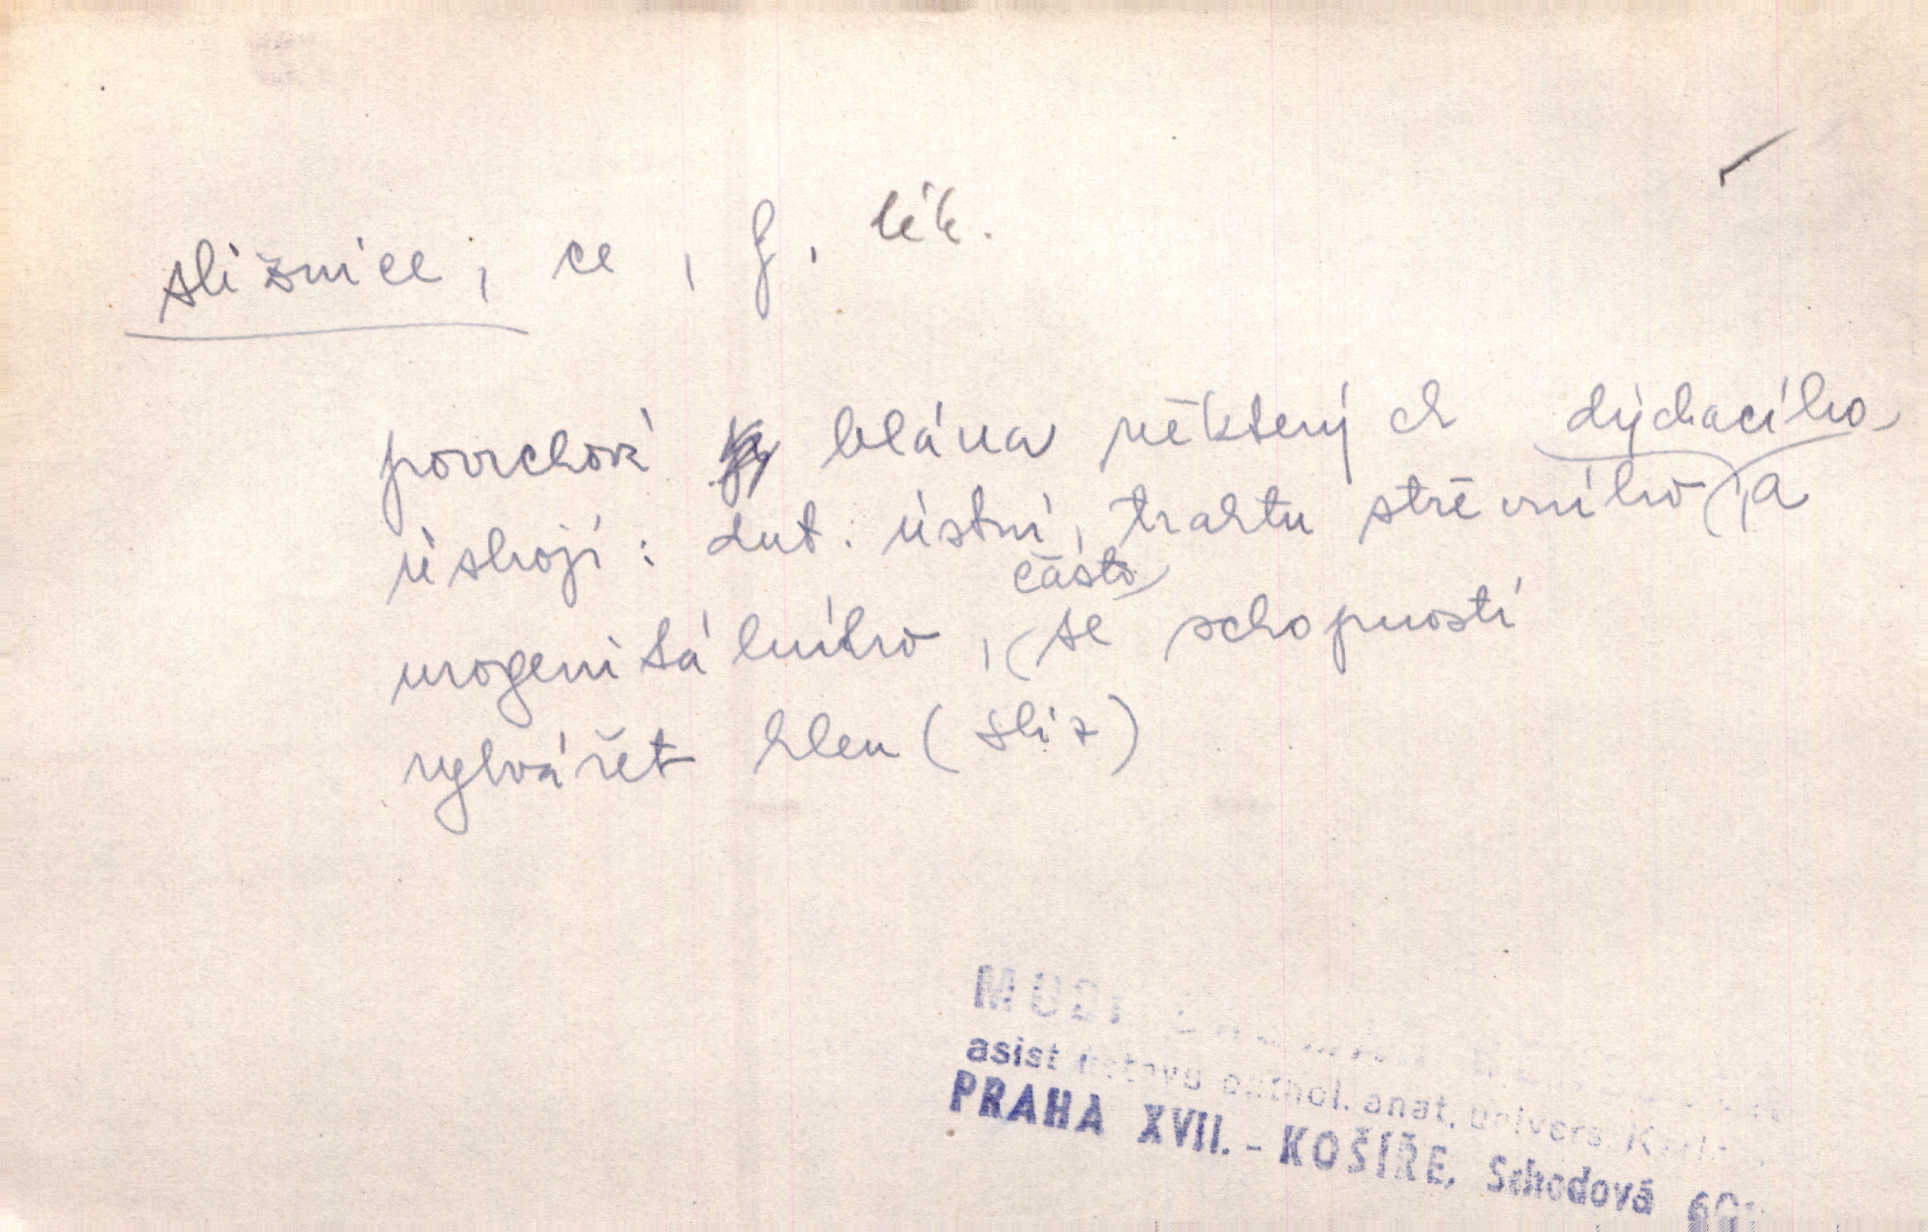 sliznice, ce, f, lék.
povrchová blána některých dýchacího
ústrojí: dut. ústní, traktu střevního, a
často
urogenitálního, se schopností
vytvářet hlen (sliz)
MUDr
asist ústavu pathol. anat. univers. Karl.
PRAHA XVII. - KOŠÍŘE, Schodová